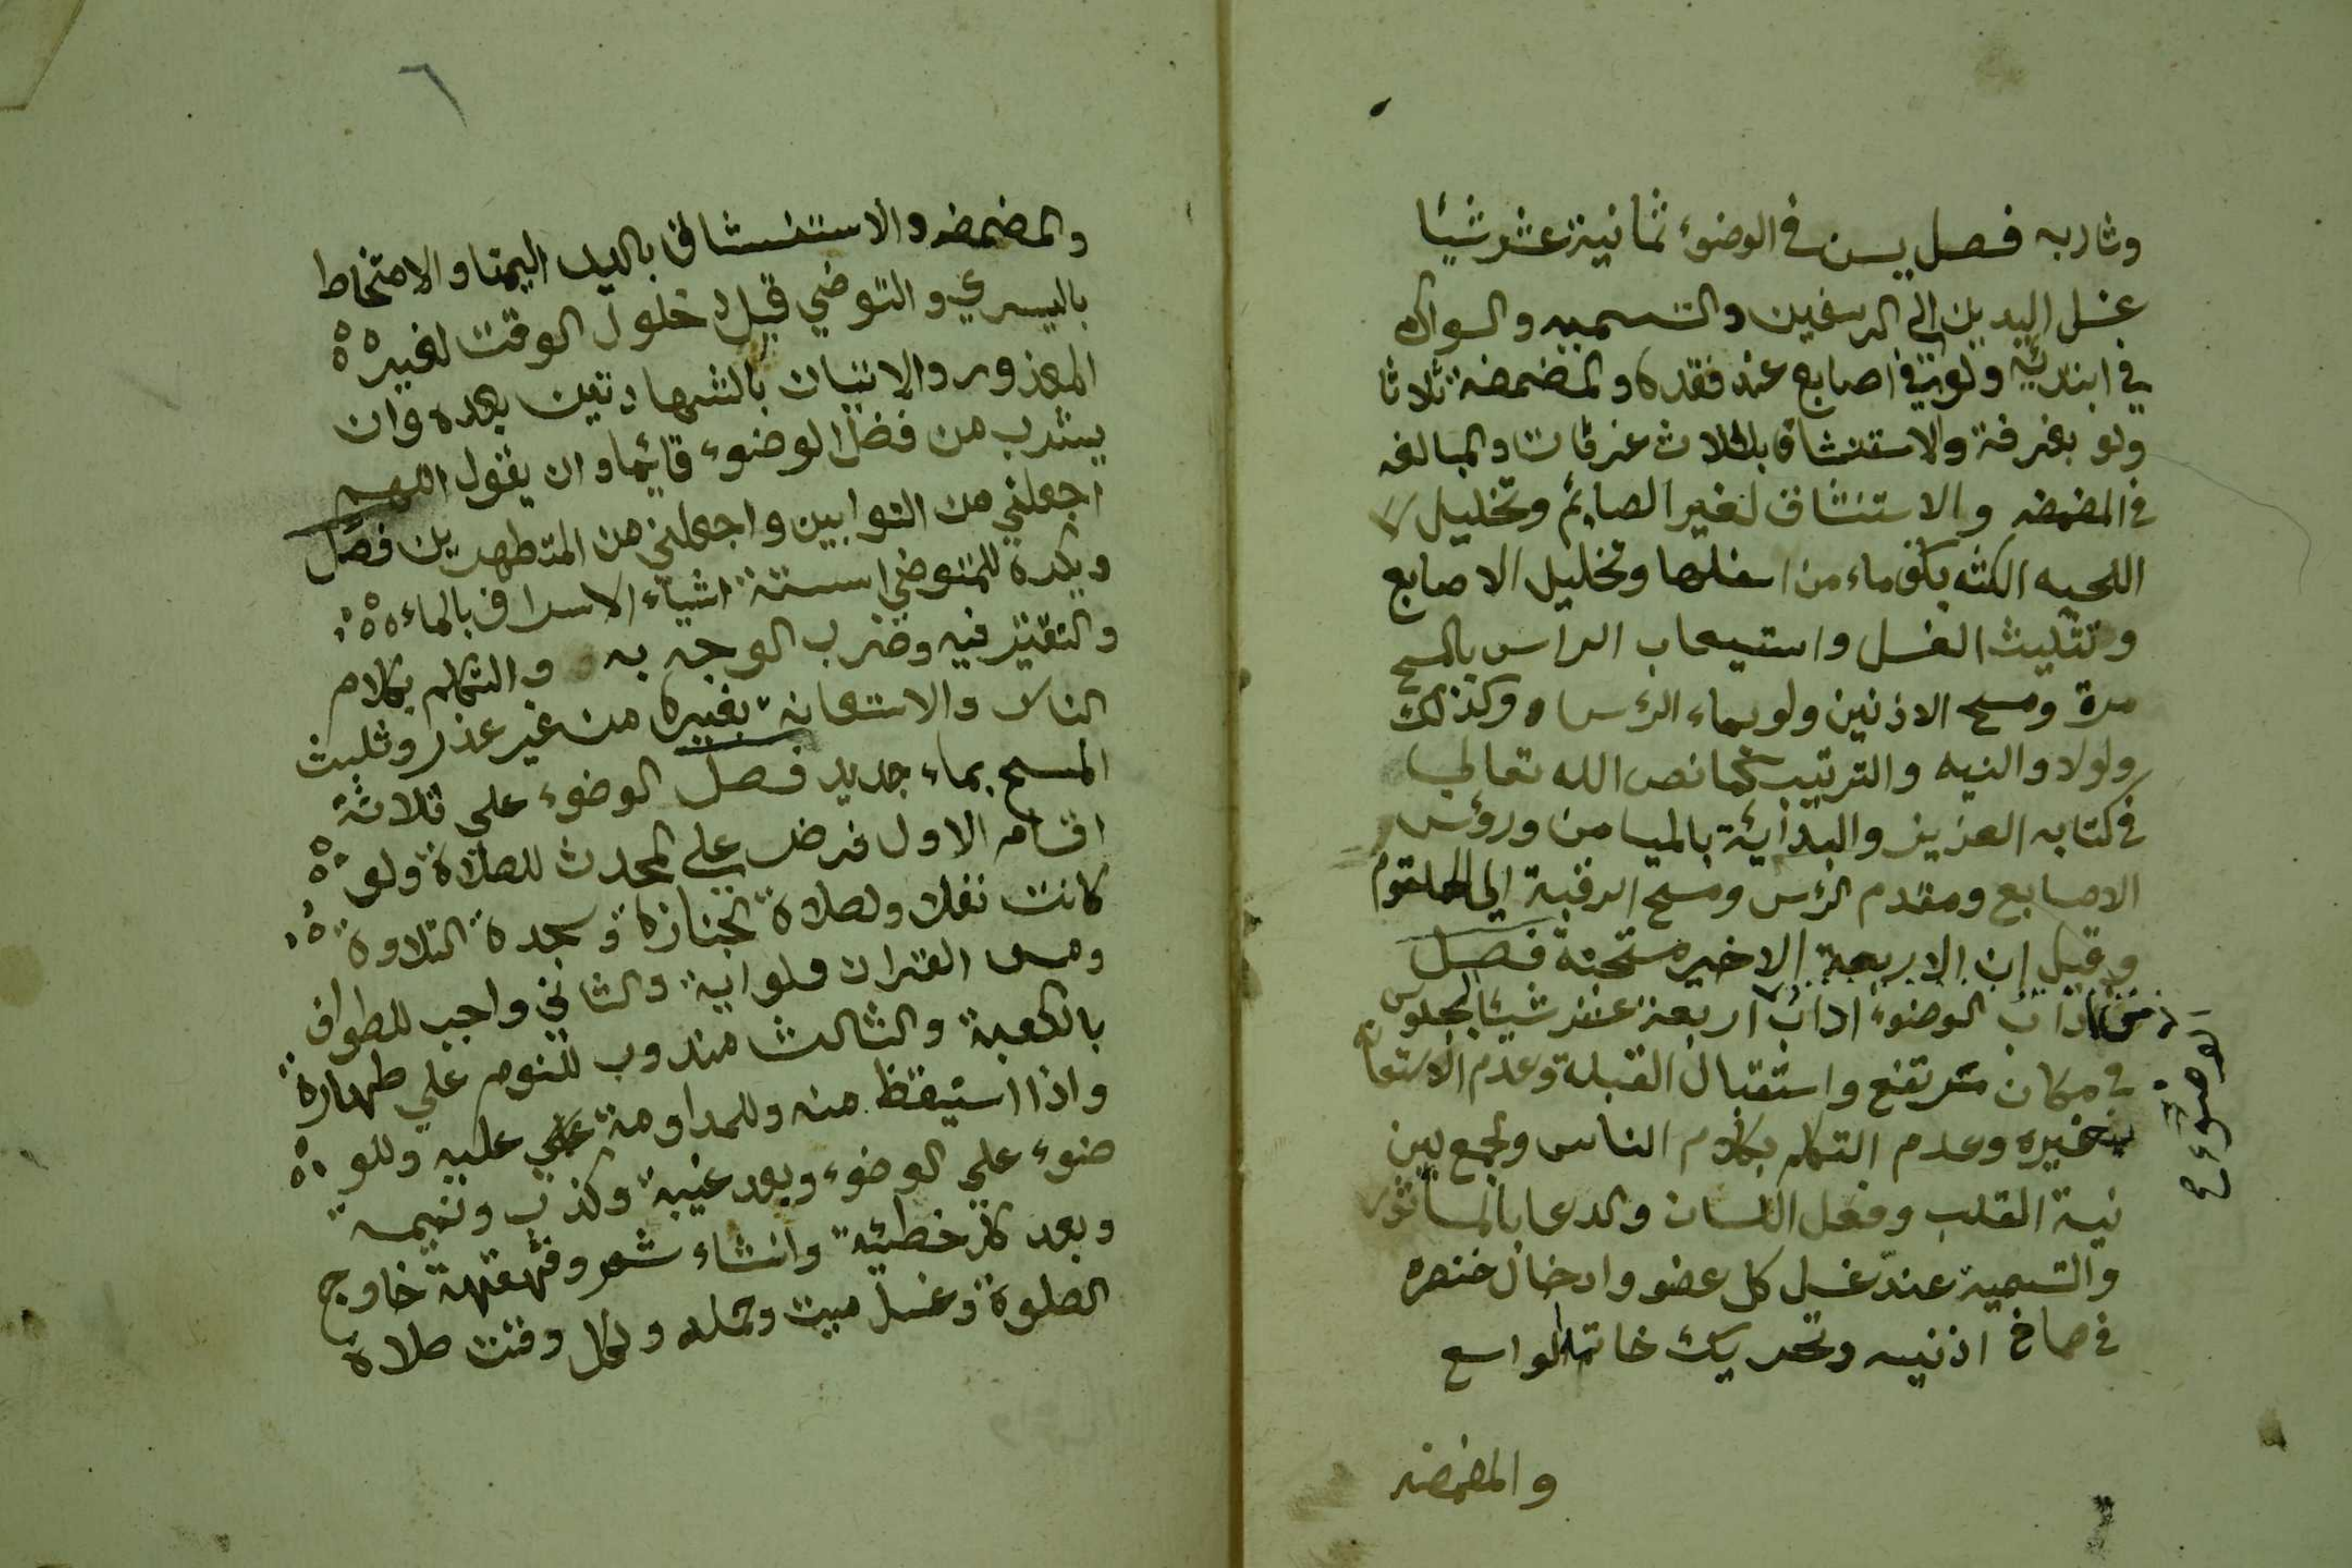 وشاربه فصل يسن في الوضوء ثمانية عشر شيئا
غسل اليدين الي الرسغين والتسميه والسواك
في ابتدائه ولو في اصابع عند فقده والمضمضة ثلاثا
ولو بغرفة والاستنشاق بثلاث غرفات والمبالغه
في المضمضه والاستنشاق لغير الصايم وتخليل
اللحيه الكثه بكف ماء من اسفلها وتخليل الاصابع
وتثليث الغسل واستيعاب الراس بالمسح
مرة ومسح الاذنين ولو بماء الرس وكذلك
ولولا والنيه والترتيب كما نص الله تعالي
في كتابه العزيز والبدائة بالميامن ورؤس
الاصابع ومقدم الرس ومسح الرقبة الي الحلقوم
وقيل ان الاربعة الاخير مستحبة فصل
من اداب الوضوء اداب اربعة عشر شيئا الجلوس
في مكان مرتفع واستقبال القبلة وعدم الاستعانه
بغيره وعدم التكلم بكلام الناس والجمع بين
نية القلب وفعل اللسان والدعا بالماثور
والتسمية عند غسل كل عضو وادخال خنصره
في صماخ اذنيه وتحريك خاتمه الواسع
والمضمضه
الوضوء
٦
والمضمضه والاستنشاق باليد اليمنا والامتخاط
باليسري والتوضي قبل دخول الوقت لغير
المعذور والاتيان بالشهادتين بعده وان
يشرب من فضل الوضوء قائما وان يقول اللهم
اجعلني من التوابين واجعلني من المتطهرين فصل
ويكره للمتوضي ستة اشياء الاسراف بالماء
والتقتير فيه وضرب الوجه به والتكلم بكلام
الناس والاستعانة بغيره من غير عذر وثليث
المسح بماء جديد فصل الوضوء علي ثلاثة
اقسام الاول فرض علي المحدث للصلاة ولو
كانت نفلا ولصلاة الجنازة وسجدة التلاوة
ومس القران ولو اية والثاني واجب للطواف
بالكعبة والثالث مندوب للنوم علي طهارة
واذا استيقظ منه وللمداومة علي عليه وللو
ضوء علي الوضوء وبعد غيبة وكذب ونميمه
وبعد كل خطيئة وانشاء شعر وقهقهة خارج
الصلوة وغسل ميت وحمله ولكل وقت صلاة